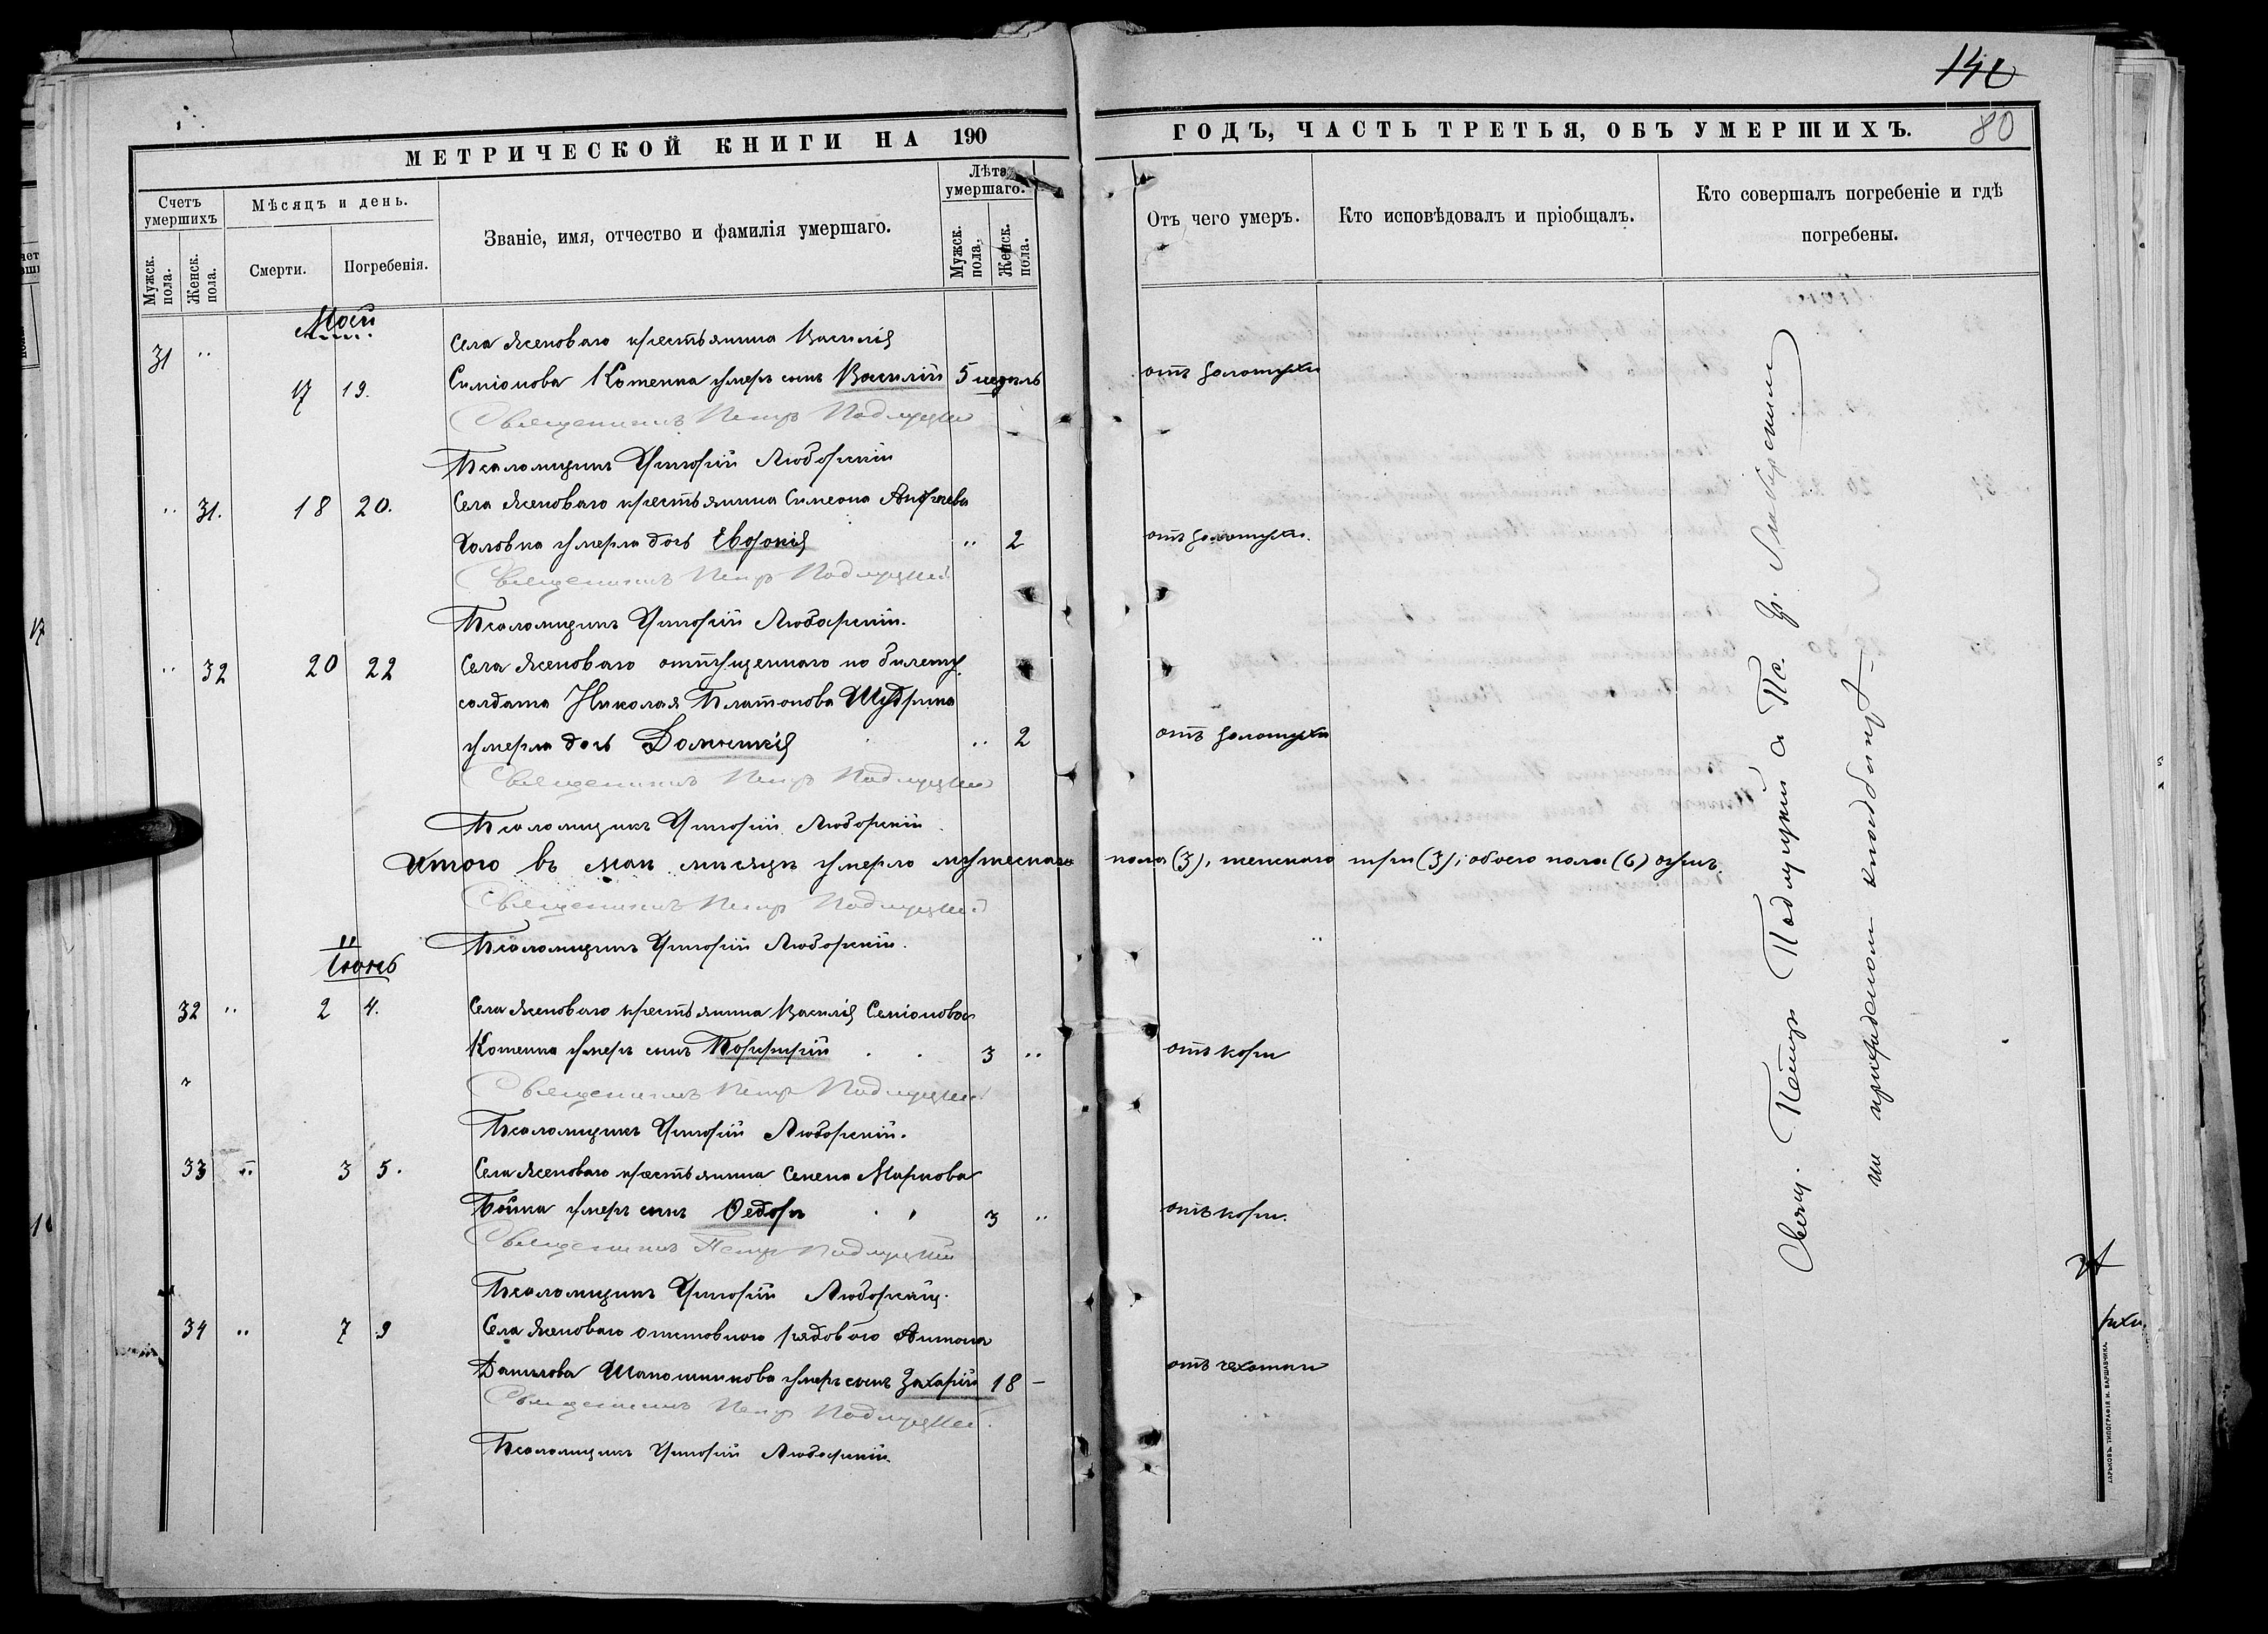 140
80
МЕТРИЧЕСКОЙ КНИГИ НА 190
ГОДЪ, ЧАСТЬ ТРЕТЬЯ, ОБЪ УМЕРШИХЪ.
Счетъ умершихъ
Мѣсяцъ и день.
Званіе, имя, отчество и фамилія умершаго.
Лѣта умершаго.
Отъ чего умеръ.
Кто исповѣдовалъ и пріобщалъ.
Кто совершалъ погребеніе и гдѣ погребены.
Мужск. пола.
Женск. пола.
Смерти.
Погребенія.
Мужск. пола.
Женск. пола.
Май
31 " Села Ясеноваго крестьянина Василія
17 19. Симіонова Котенка умеръ сынъ Василій 5 недѣль отъ золотухи
Священникъ Петръ Подлуцкій
Псаломщикъ Григорій Люборскій
" 31. 18 20. Села Ясеноваго крестьянина Симеона Андреева
Головка умерла дочь Евдокія " 2 отъ золотухи.
Священникъ Петръ Подлуцкій
Псаломщикъ Григорій Люборскій.
" 32 20 22 Села Ясеноваго отпущеннаго по билету
солдата Николая Платонова Щудрика
умерла дочь Домникія " 2 отъ золотухи
Священникъ Петръ Подлуцкій
Псаломщикъ Григорій Люборскій
Итого въ маѣ мѣсяцѣ умерло мужескаго пола (3), женскаго три (3), обоего пола (6) душъ.
Священникъ Петръ Подлуцкій
Псаломщикъ Григорій Люборскій.
Іюнь
32 " 2 4. Села Ясеноваго крестьянина Василія Семіонова
Котенка умеръ сынъ Порфирій 3 " отъ кори
Священникъ Петръ Подлуцкій
Псаломщикъ Григорій Люборскій.
33 " 3 5. Села Ясеноваго крестьянина Семена Маркова
Бойка умеръ сынъ Ѳедоръ 3 " отъ кори.
Священникъ Петръ Подлуцкій
Псаломщикъ Григорій Люборскій.
34 " 7 9 Села Ясеноваго рядового Антона
Данилова Шапошникова умеръ сынъ Захарій 18 - отъ чахотки
Священникъ Петръ Подлуцкій.
Псаломщикъ Григорій Люборскій.
Свящ. Петръ Подлуцкій а Пс. Гр. Люборскимъ
на приходскомъ кладбищѣ
ХАРЬКОВЪ, ТИПОГРАФІЯ И. ВАРШАВЧИКА.